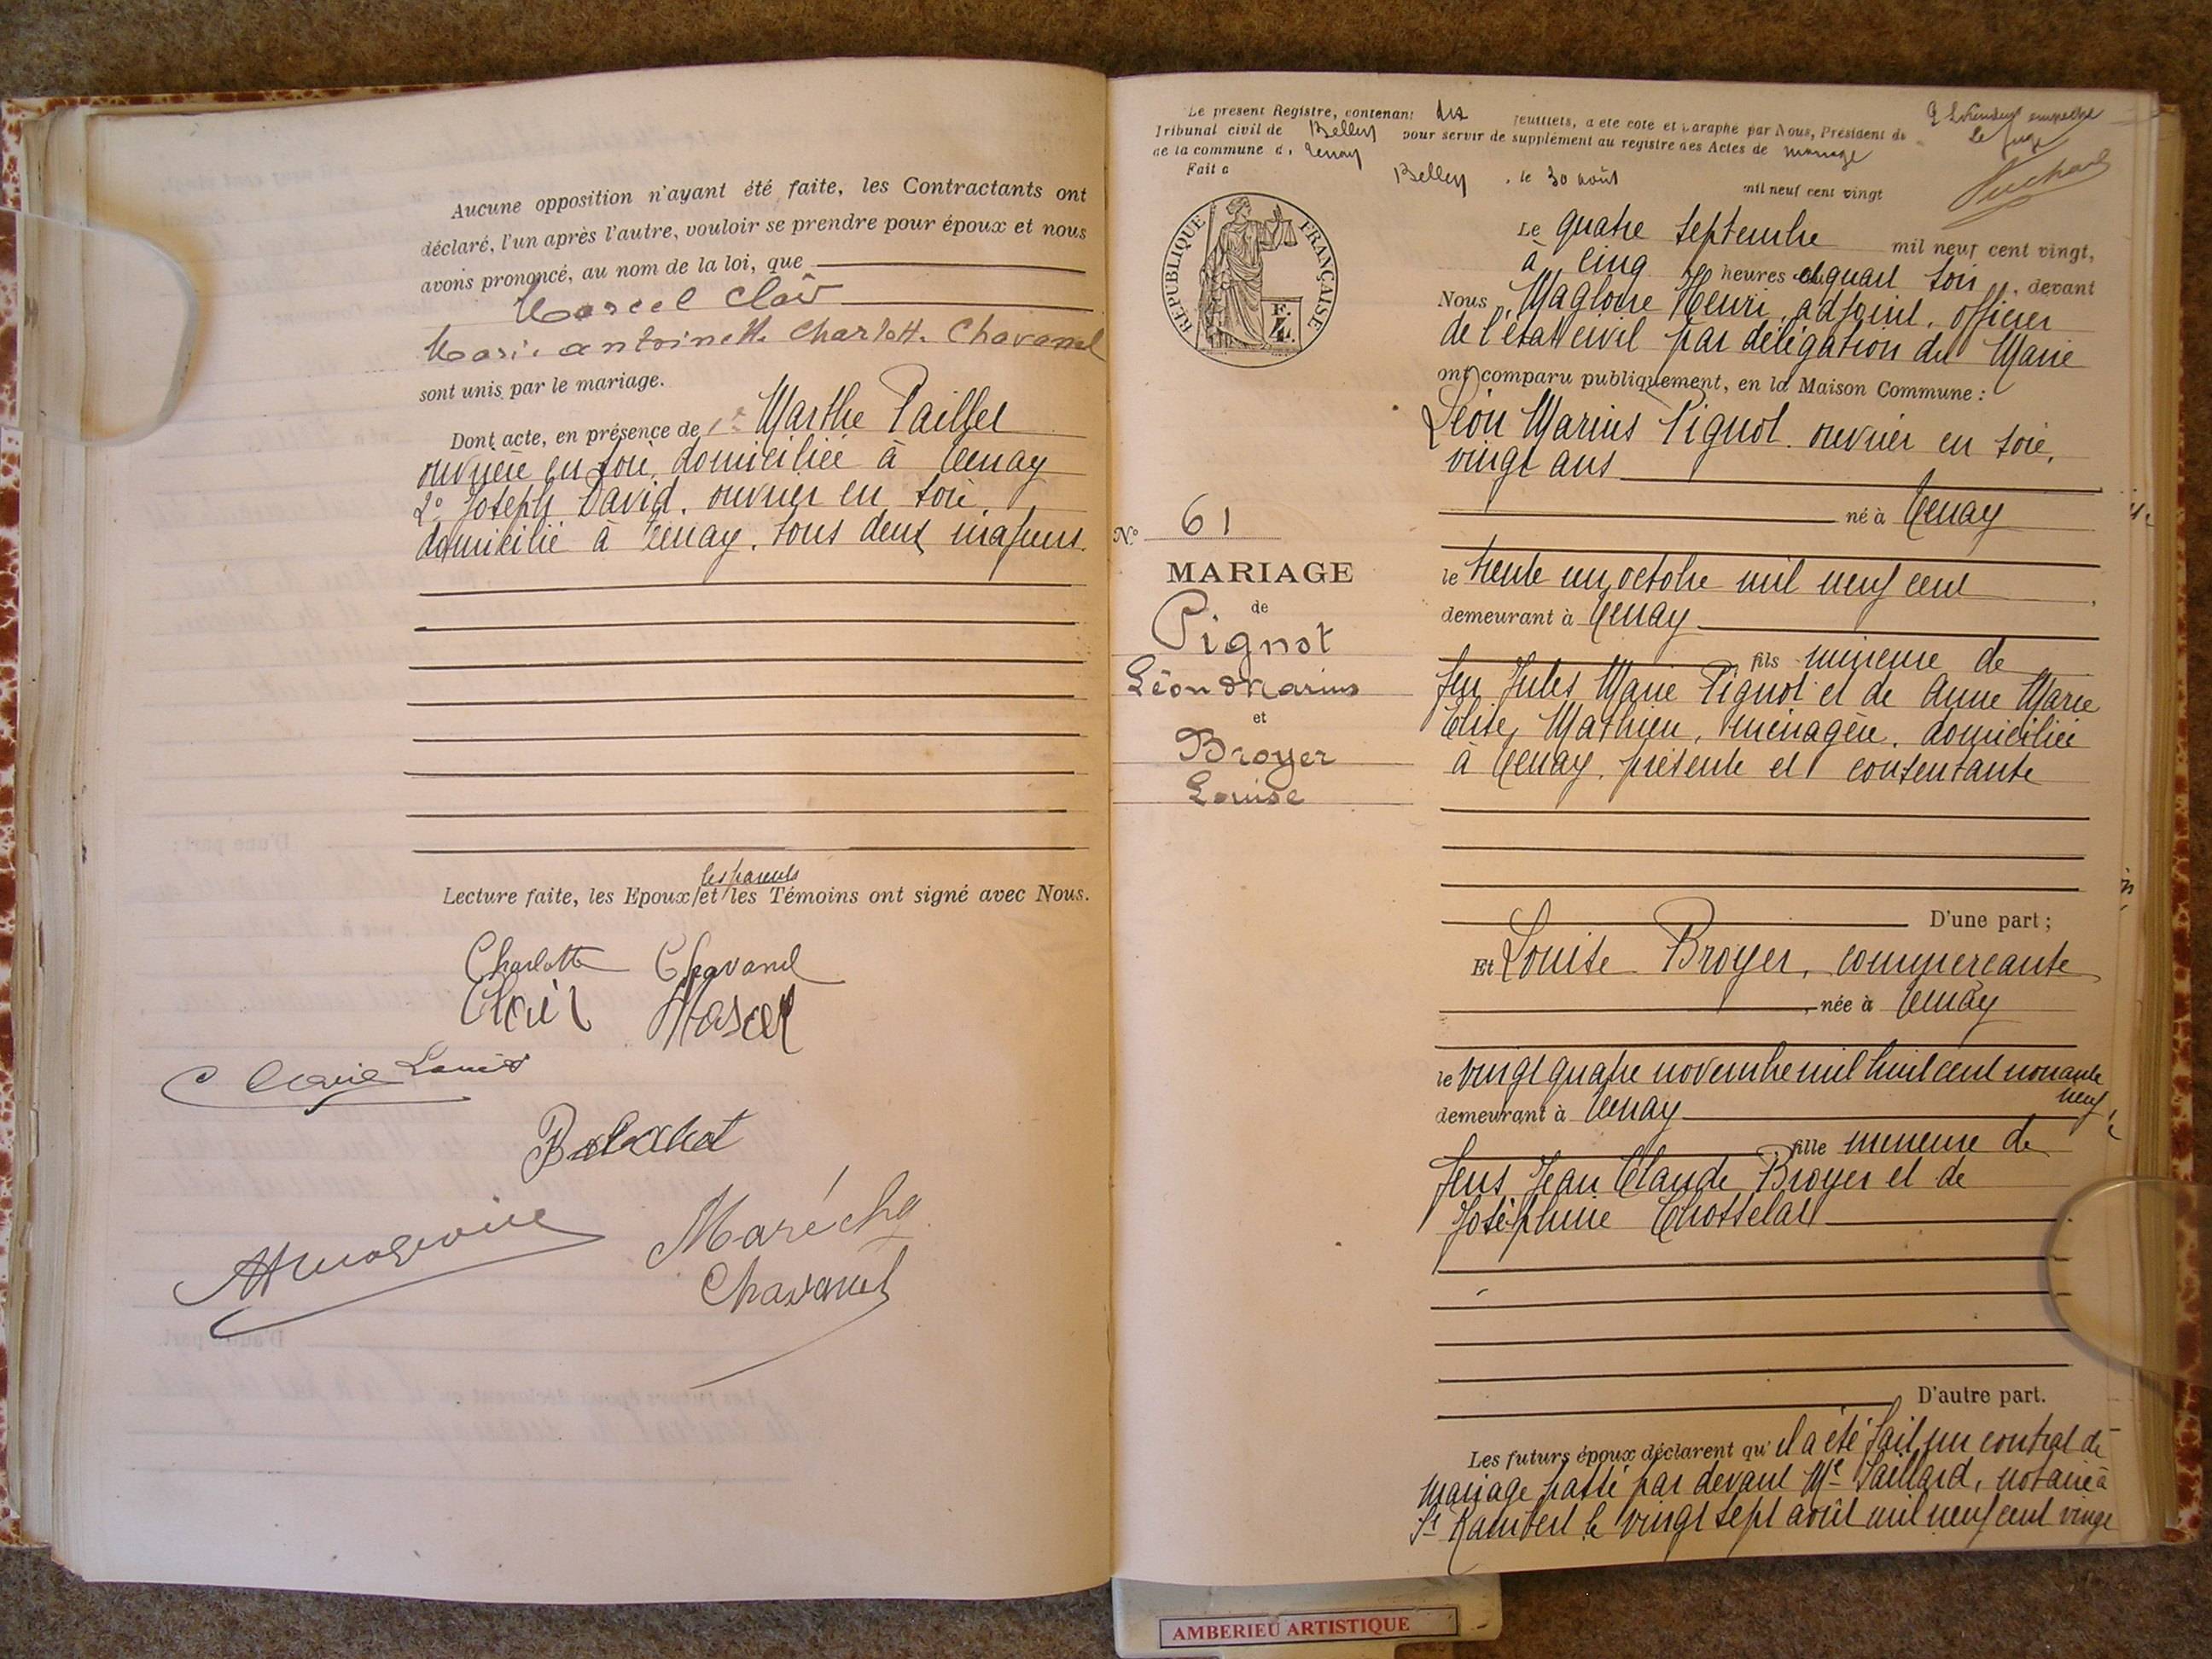 Aucune opposition n'ayant été faite, les Contractants ont
déclaré, l'un après l'autre, vouloir se prendre pour époux et nous
avons prononcé, au nom de la loi, que
Marcel Clair
Marie antoinette Charlotte Chavanel
sont unis par le mariage.
Dont acte, en présence de 1° Marthe Paillet
ouvrière en soie, domiciliée à Tenay
2° Joseph David, ouvrier en soie,
domicilié à Tenay, tous deux majeurs.
les parents
Lecture faite, les Epoux et les Témoins ont signé avec Nous.
Charlotte Chavanel
Clair Marcel
Louis
Chavanel
Le present Registre, contenant dix feuillets, a été coté et paraphé par Nous, Président du
Tribunal civil de Belley pour servir de supplément au registre des Actes de mariage
de la commune d. Tenay
Fait à Belley, le 30 août mil neuf cent vingt
Le Juge
RÉPUBLIQUE FRANÇAISE
Le quatre septembre mil neuf cent vingt,
à cinq heures et quart soir, devant
Nous Magloire Henri, adjoint, officier
de l'état civil par délégation du Maire
ont comparu publiquement, en la Maison Commune :
Léon Marius Pignot, ouvrier en soie,
vingt ans
né à Tenay
le trente un octobre mil neuf cent
demeurant à Tenay
fils mineure de
feu Jules Marie Pignot et de Anne Marie
Elise Mathieu, ménagère, domiciliée
à Tenay, présente et consentante
D'une part ;
Et Louise Broyer, commerçante
née à Tenay
le vingt quatre novembre mil huit cent nonante
neuf
demeurant à Tenay
fille mineure de
feus Jean Claude Broyer et de
Joséphine Chosselat
D'autre part.
Les futurs époux déclarent qu'il a été fait un contrat de
mariage passé par devant Me Saillard, notaire à
St Rambert le vingt sept août mil neuf cent vingt
N° 61
MARIAGE
de
Pignot
Léon Marius
et
Broyer
Louise
AMBERIEU ARTISTIQUE